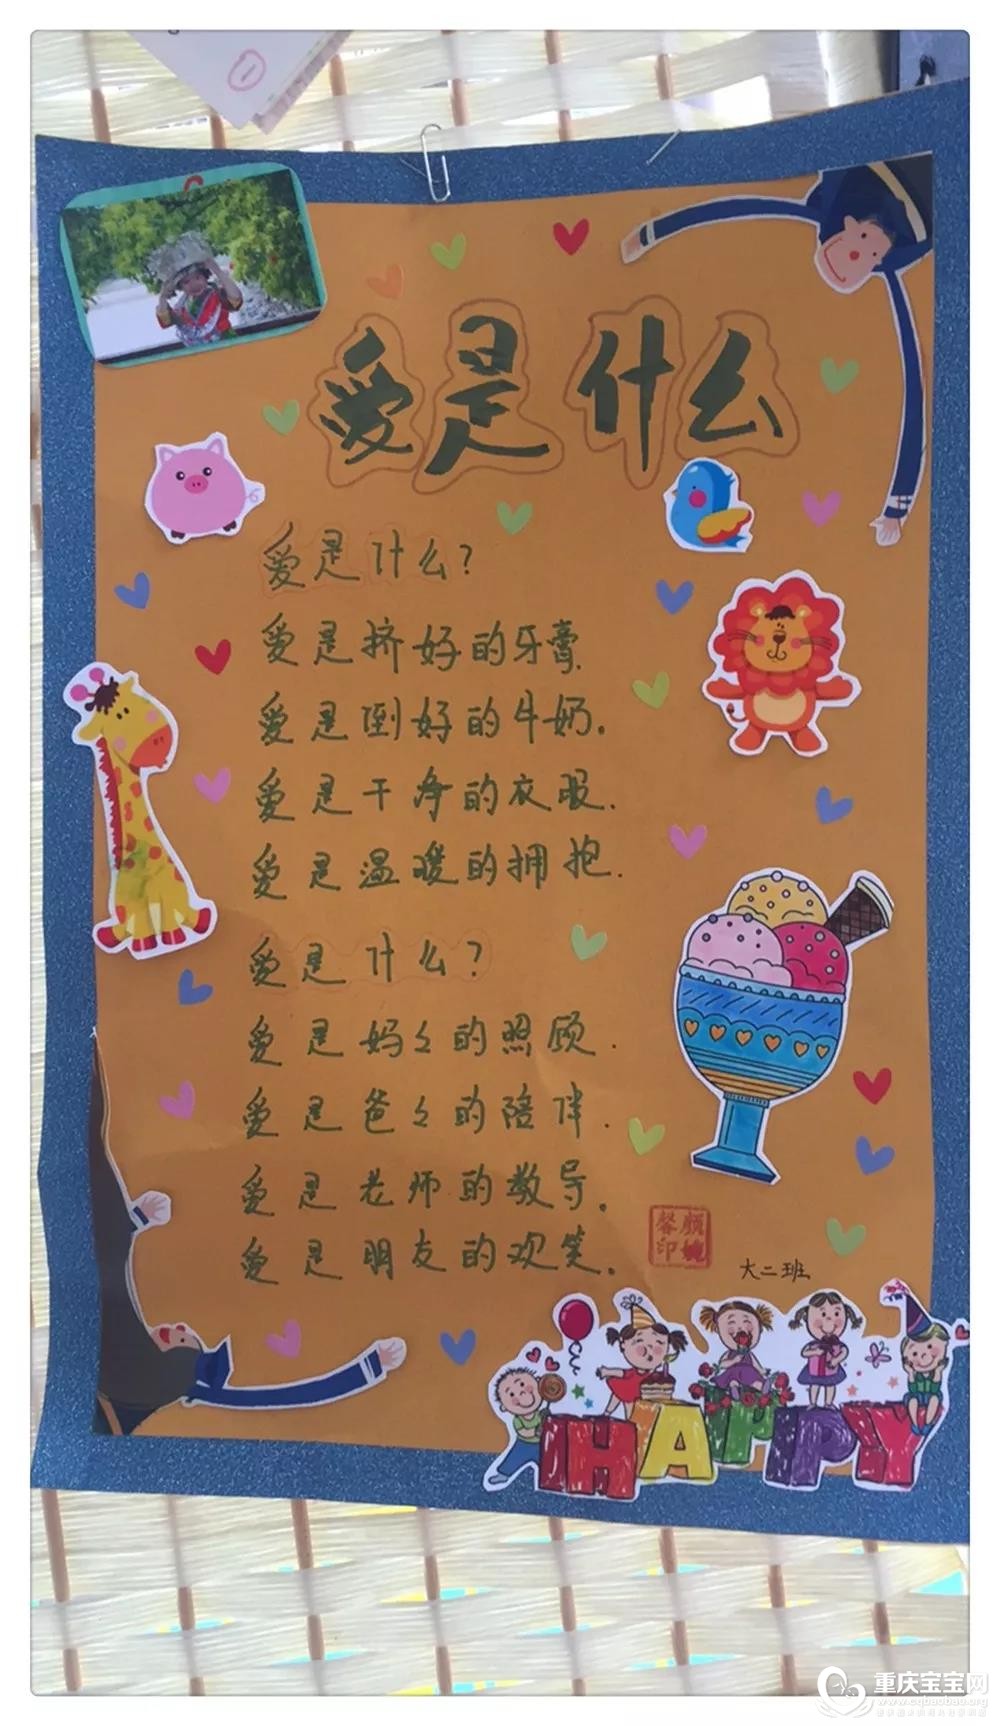 爱是什么
爱是什么?
爱是挤好的牙膏.
爱是倒好的牛奶.
爱是干净的衣服.
爱是温暖的拥抱.
爱是什么?
爱是妈々的照顾.
爱是爸々的陪伴.
爱是老师的教导.
爱是朋友的欢笑.
颜婉
馨印
大二班
HAPPY
重庆宝宝网
www.cqbaobao.com